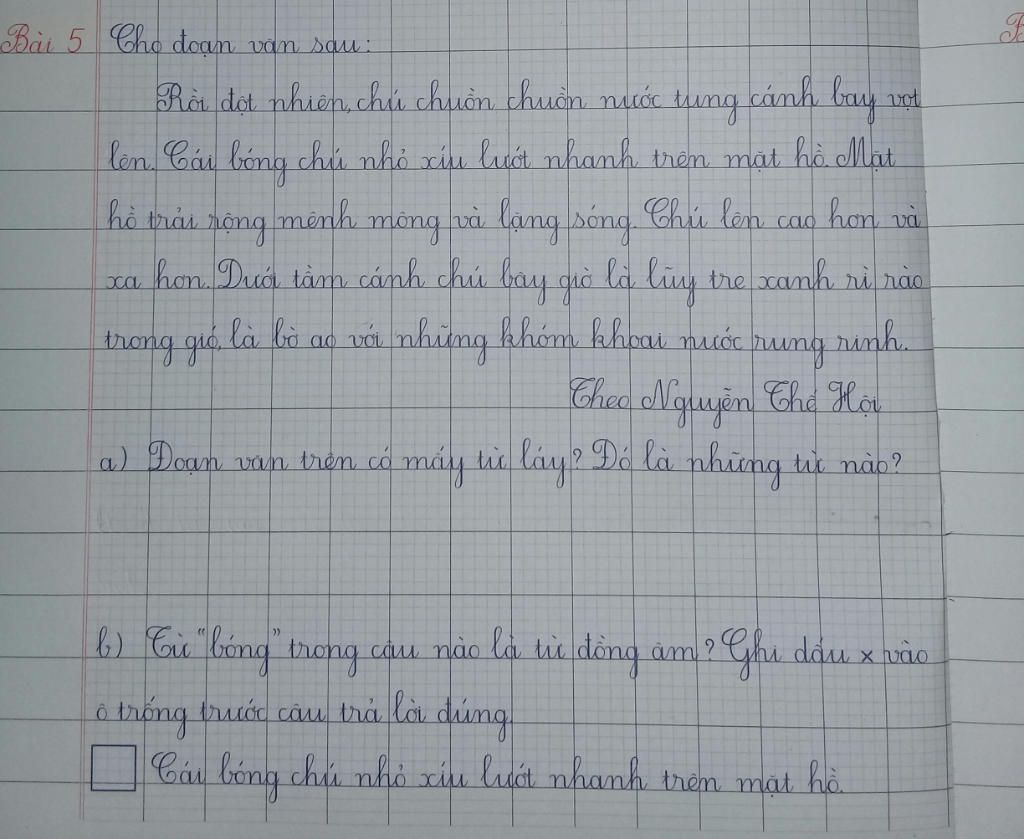 Bài 5 Cho đoạn văn sau:
Rồi đột nhiên, chú chuồn chuồn nước tung cánh bay vọt
lên. Cái bóng chú nhỏ xíu lướt nhanh trên mặt hồ. Mặt
hồ trải rộng mênh mông và lặng sóng. Chú lên cao hơn và
xa hơn. Dưới tầm cánh chú bây giờ là lũy tre xanh rì rào
trong gió, là bờ ao với những khóm khoai nước rung rinh.
Theo Nguyễn Thế Hội
a) Đoạn văn trên có mấy từ láy? Đó là những từ nào?
b) Từ "bóng" trong câu nào là từ đồng âm? Ghi dấu x vào
ô trống trước câu trả lời đúng
Cái bóng chú nhỏ xíu lướt nhanh trên mặt hồ.